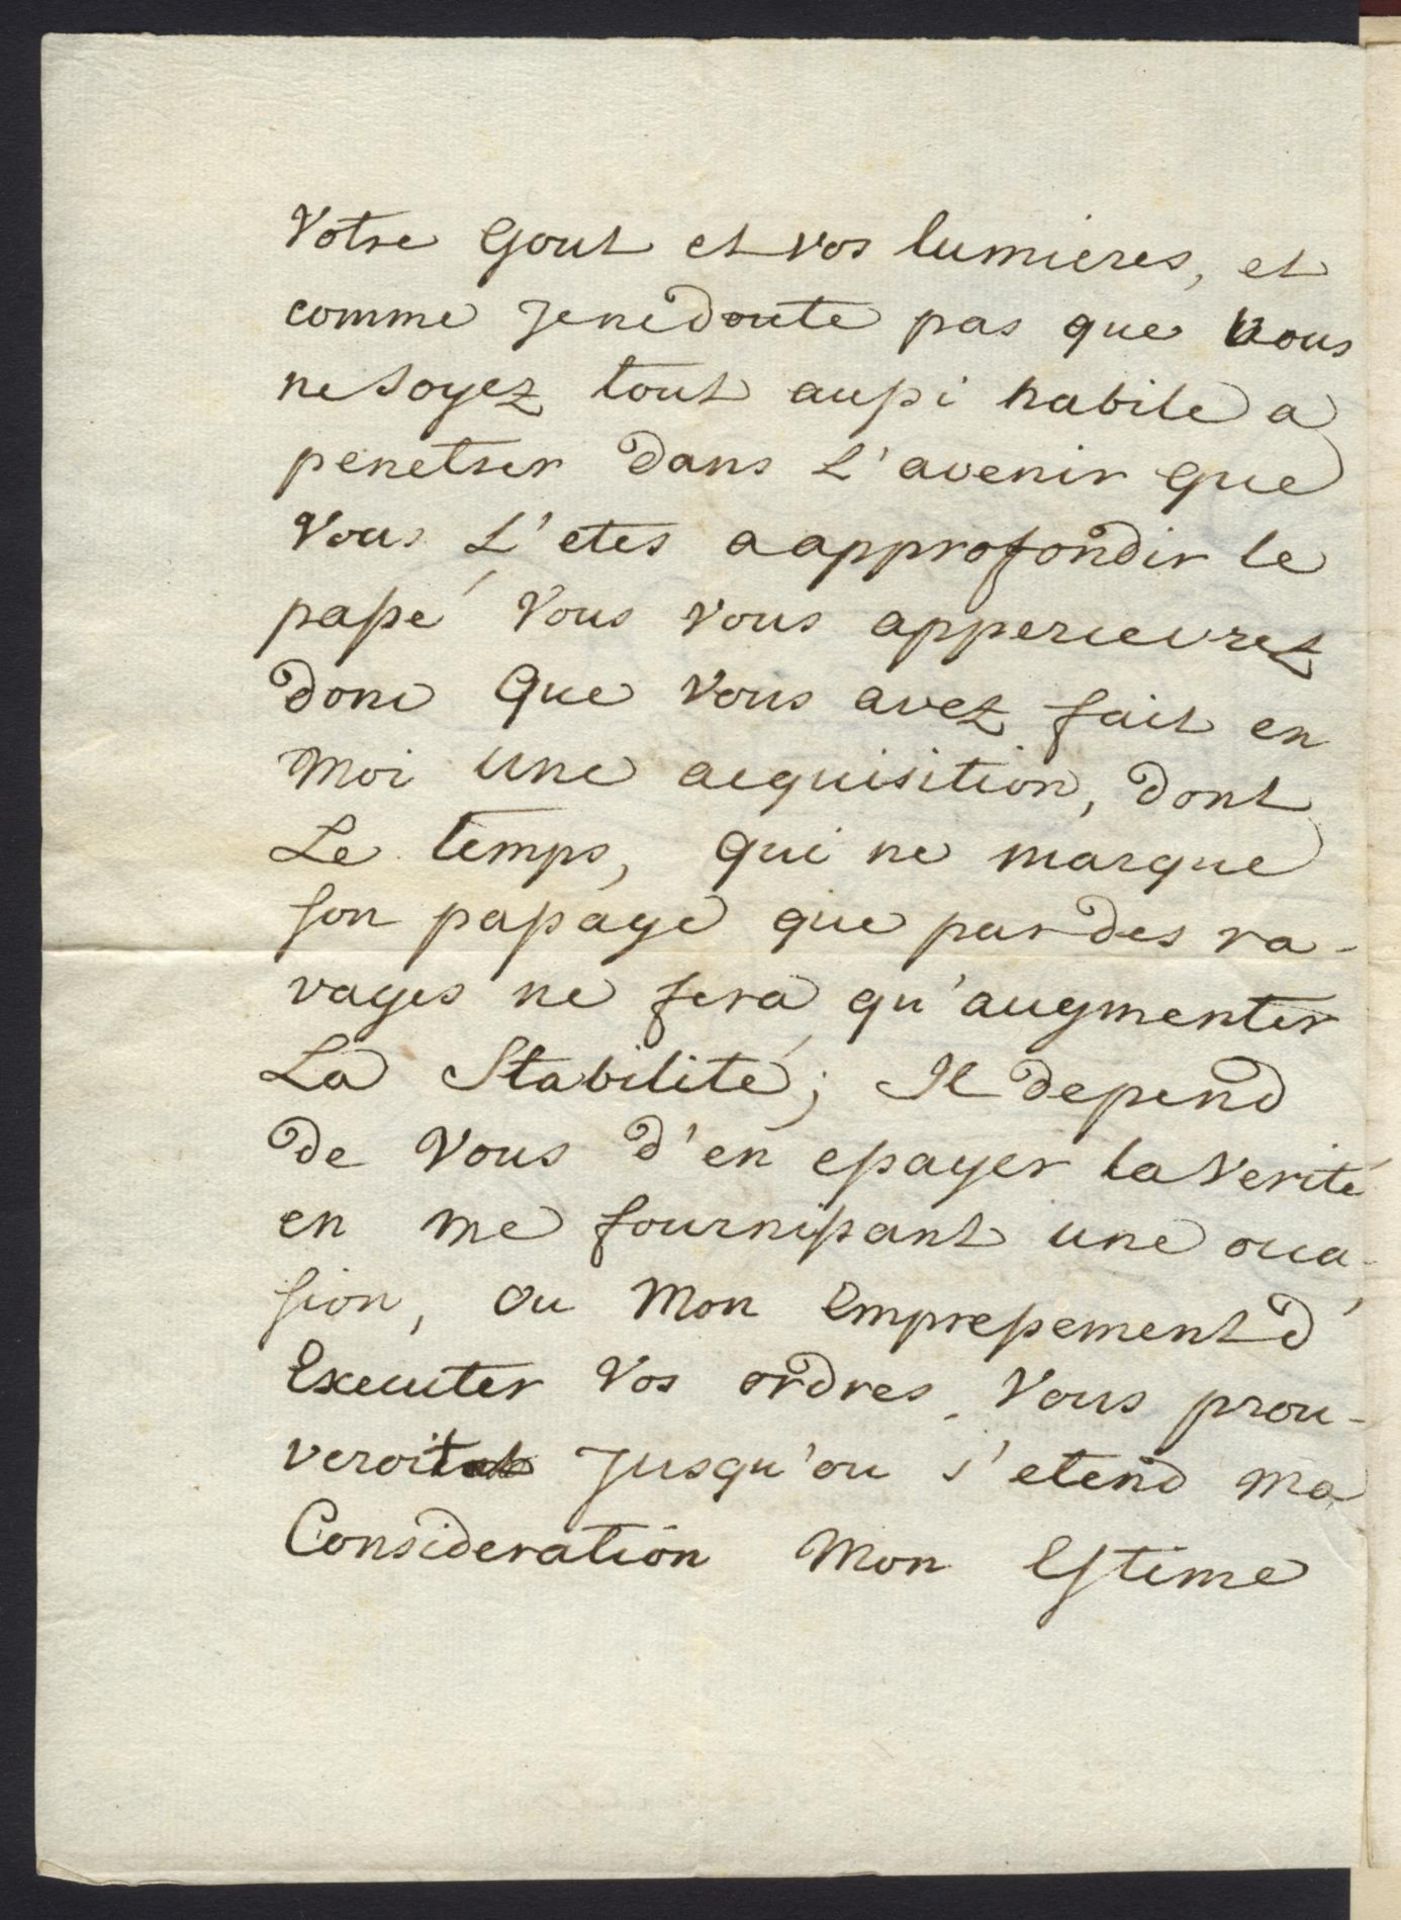 Votre Gout et vos lumieres, et
comme Je ne doute pas que vous
ne soyez tout aussi habile a
penetrer dans L'avenir que
Vous L'etes a approfondir le
passé Vous vous appercevrez
donc Que vous avez fait en
Moi une acquisition, dont
Le temps, qui ne marque
son passage que par des ra-
vages ne fera qu'augmenter
La Stabilité; Il depend
de Vous d'en essayer la Verité
en me fournissant une occa-
sion, ou Mon Empressement d'
Executer Vos ordres Vous prou-
veroit Jusqu'ou s'etend ma
Consideration Mon Estime